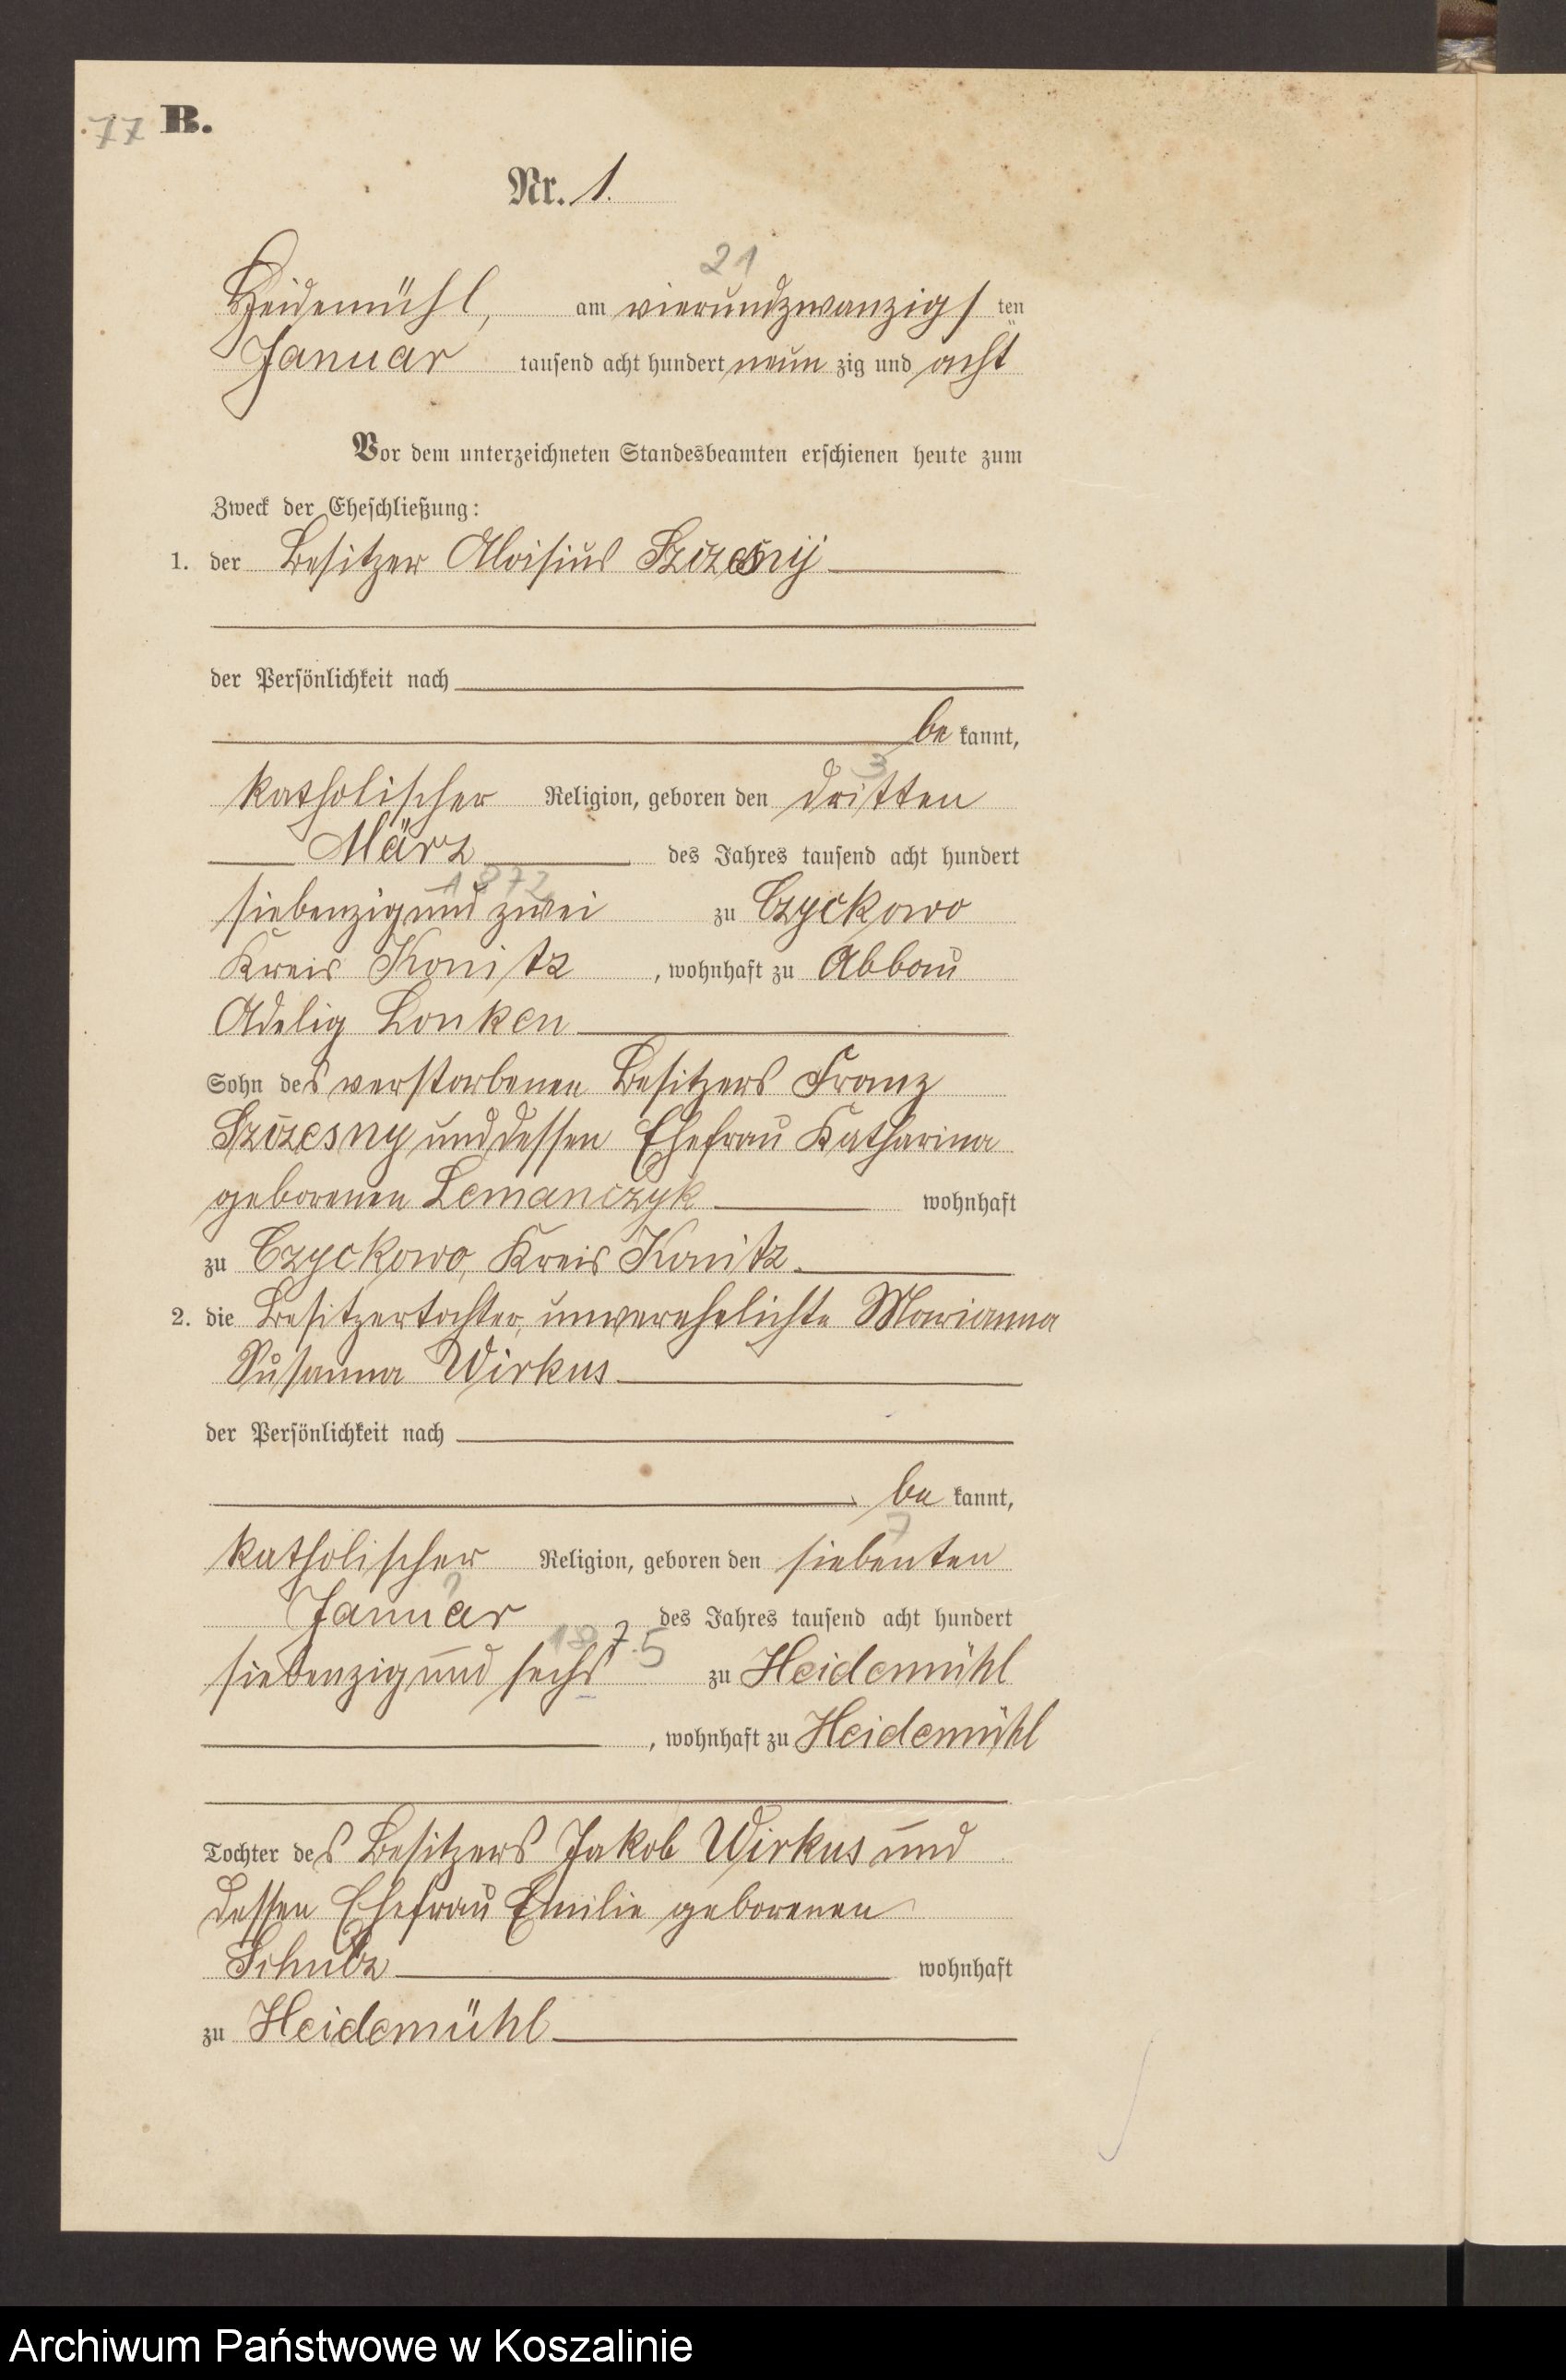 77 B.
Nr. 1.
21
Heidemühl, am vierundzwanzigs ten
Januar tausend acht hundert neun zig und acht
Vor dem unterzeichneten Standesbeamten erschienen heute zum
Zweck der Eheschließung:
1. der Besitzer Aloisius
der Persönlichkeit nach
be kannt,
3
katholischer Religion, geboren den dritten
März des Jahres tausend acht hundert
1872
siebenzig und zwei zu Czyckowo
Kreis Konitz, wohnhaft zu Abbau
Adelig Lonken
Sohn des verstorbenen Besitzers Franz
Szczesny und dessen Ehefrau Katharina
geborenen Lemanczyk wohnhaft
zu Czyckowo, Kreis Konitz.
2. die Besitzertochter, unverehelichte Marianna
Susanna Wirkus
der Persönlichkeit nach
be kannt,
7
katholischer Religion, geboren den siebenten
Januar des Jahres tausend acht hundert
187 5
siebenzig und sechs zu Heidemühl
, wohnhaft zu Heidemühl
Tochter des Besitzers Jakob Wirkus und
dessen Ehefrau Emilie geborenen
Schulz wohnhaft
zu Heidemühl
Archiwum Państwowe w Koszalinie